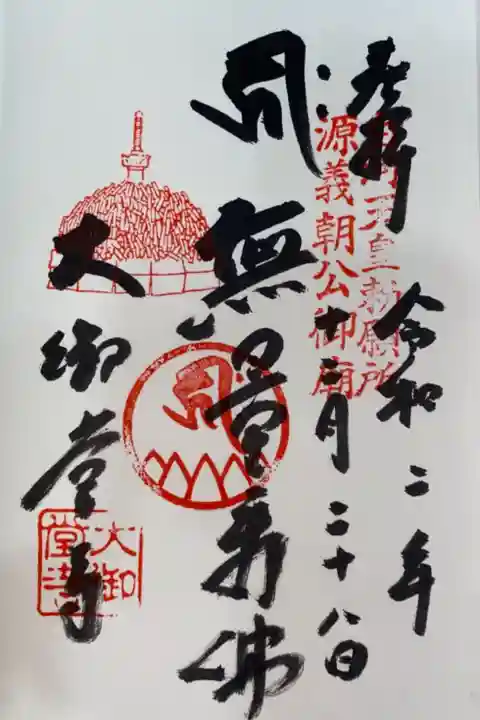 奉拝
令和二年
十二月二十八日
白河天皇勅願所
源義朝公御廟
無量寿佛
大御堂寺
大御堂寺